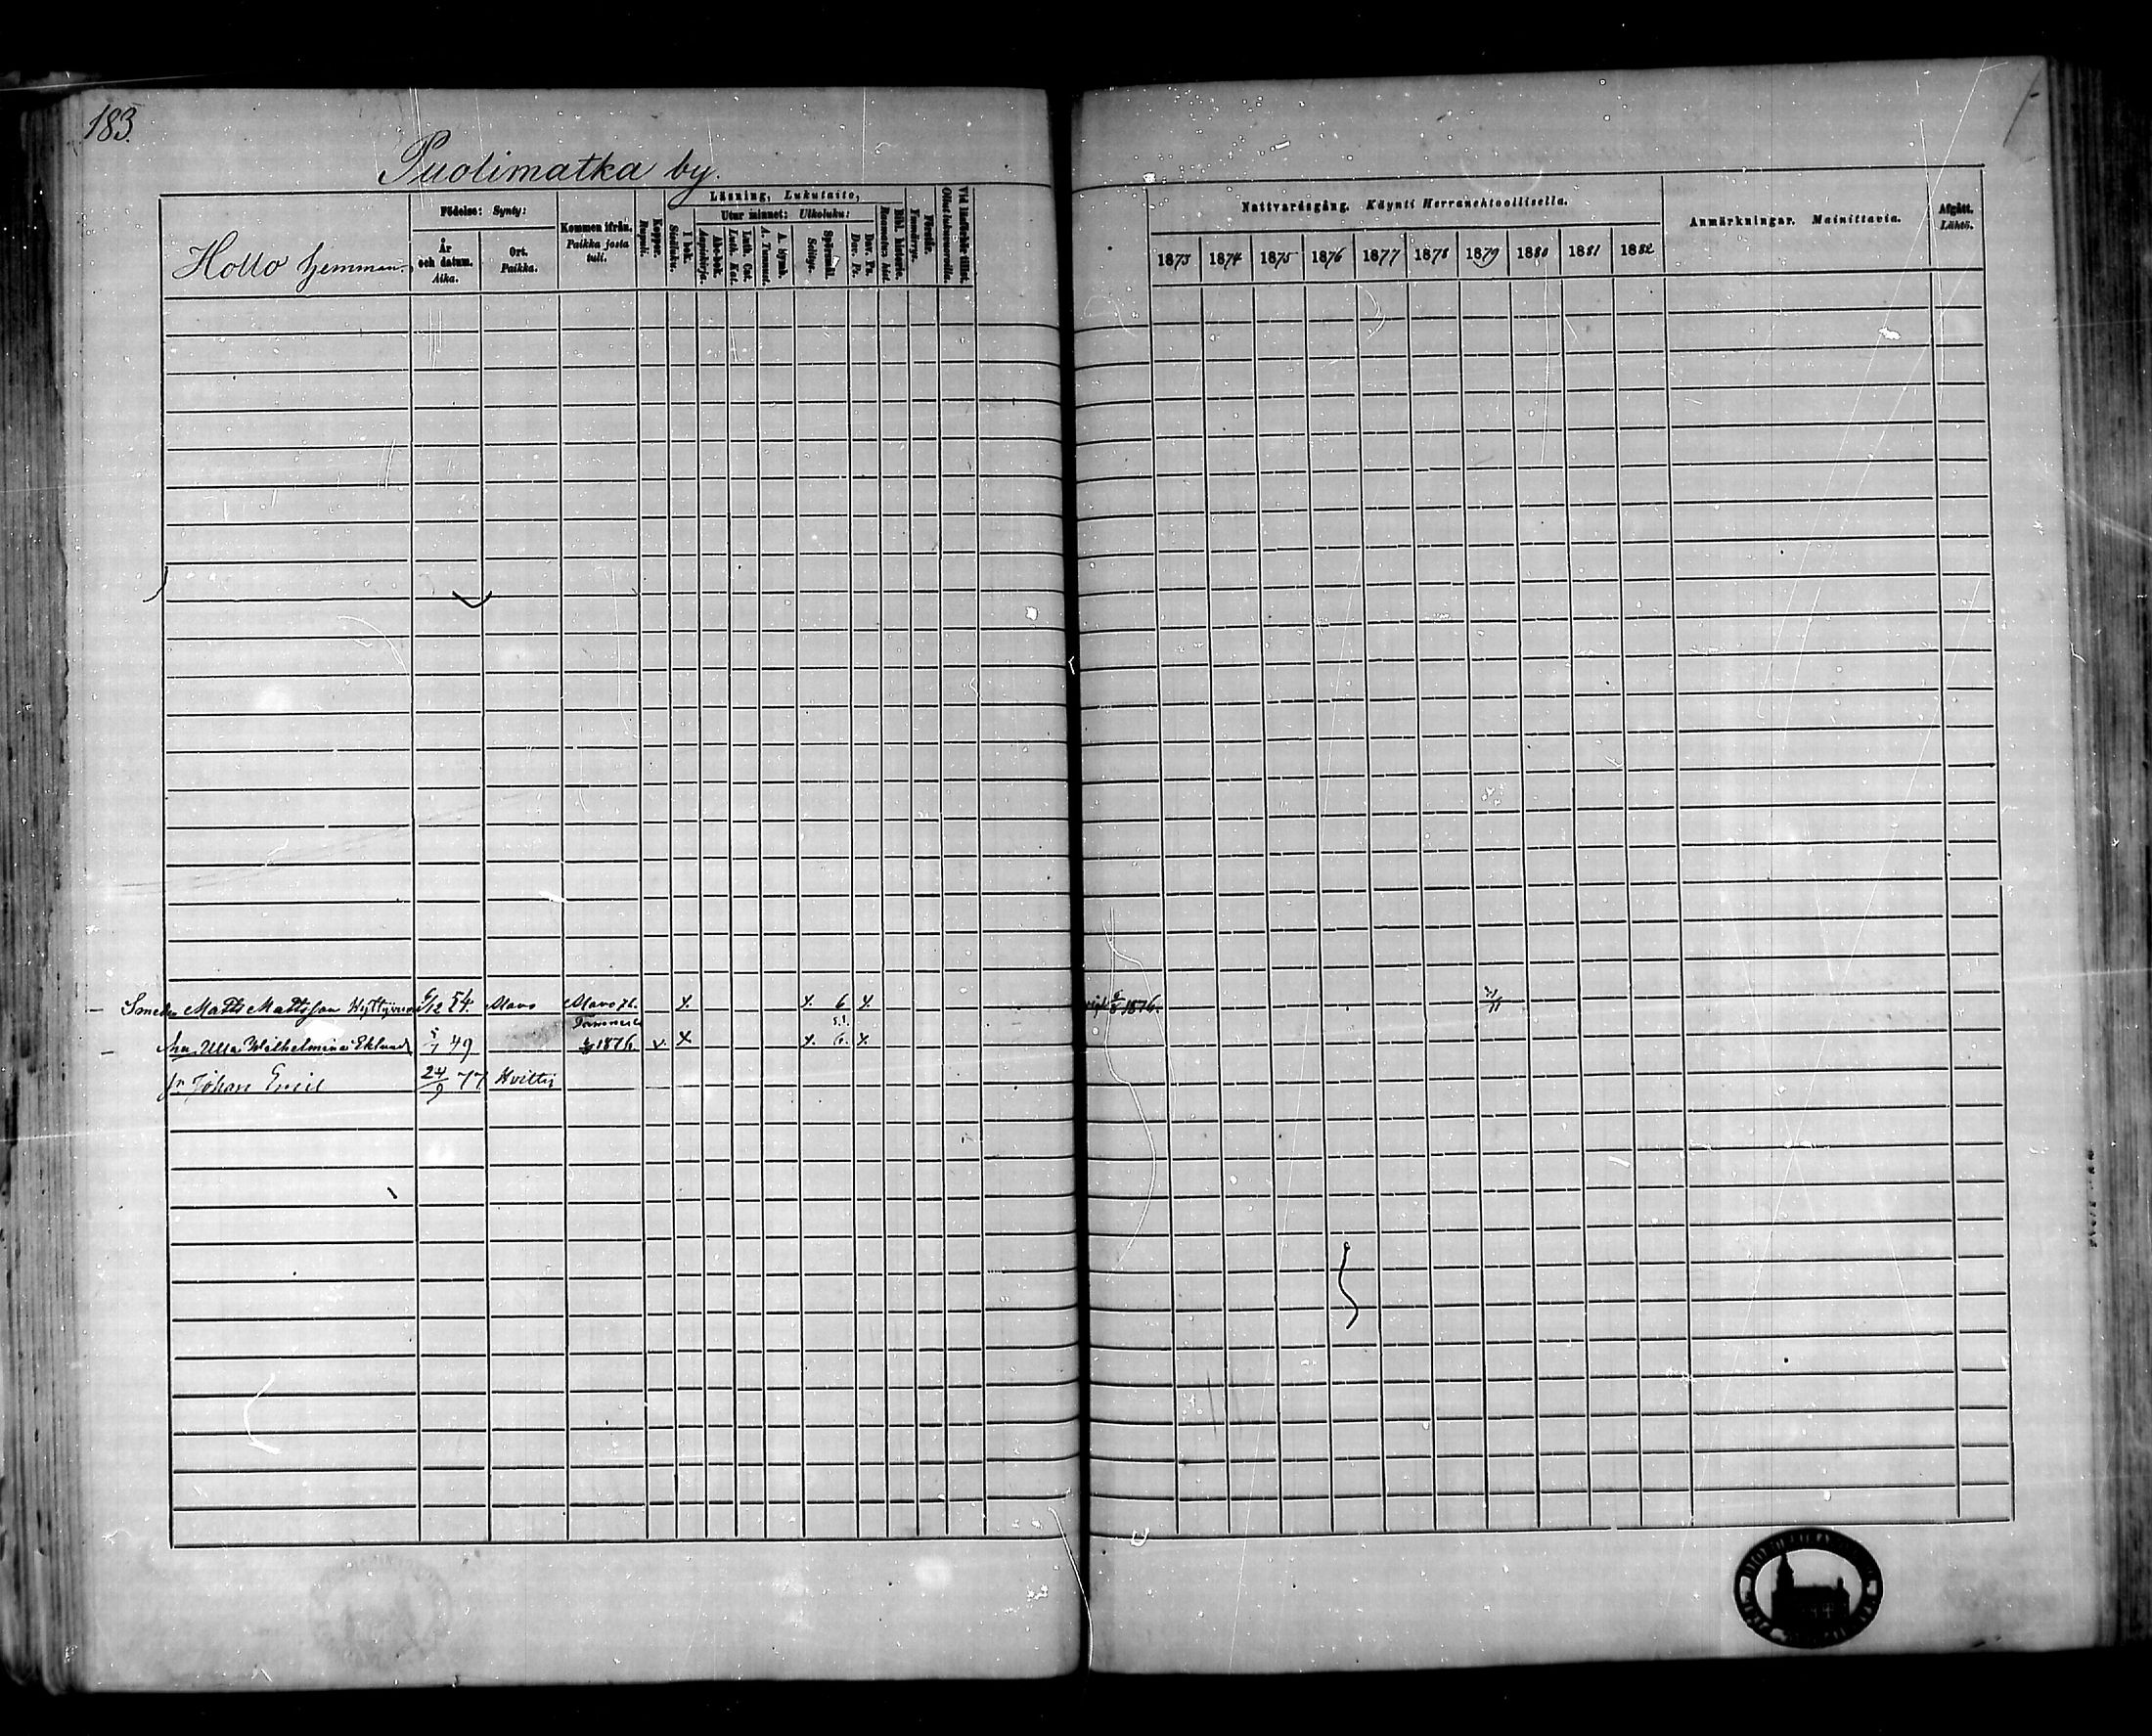 183.
Puolimatka by.
Hollo hemman.
Födelse: Synty:
År och datum. Aika.
Ort. Paikka.
Kommen ifrån. Paikka josta tuli.
Koppor. Rupuli.
Läsning, Lukutaito,
I bok. Sisäluku.
Utur minnet: Ulkoluku:
Abc-bok. Aapiskirja.
Luth. Cat. Luth. Kat.
A. Symb. A. Tunnust.
Spörsmål. Selitys.
Dav. Ps. Dav. Ps.
Bibl. historia. Raamatun hist.
Förstår. Ymmärrys.
Nattvardsgång. Käynti Herranehtoollisella.
1873 1874 1875 1876 1877 1878 1879 1880 1881 1882
Anmärkningar. Mainittavia.
Afgått. Lähtö.
Smeden Matts Mattsson 6/12 54. Alavo Alavo x. x. 6 x. 1876.
Hu. Ulla Wilhelmina Eklund 5/1 49 1876. x. x x. 6. x.
Johan Emil 24/9 77 Hvittis